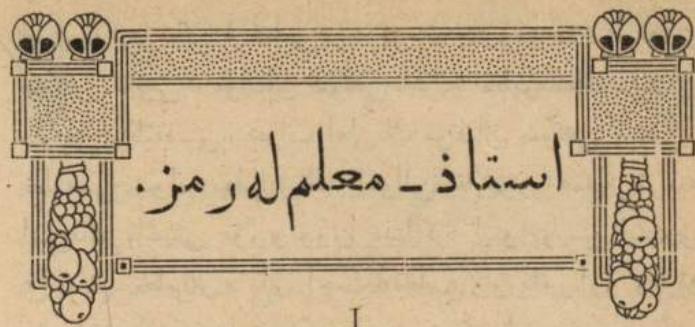 استاذ - معلم لەرمز.
I